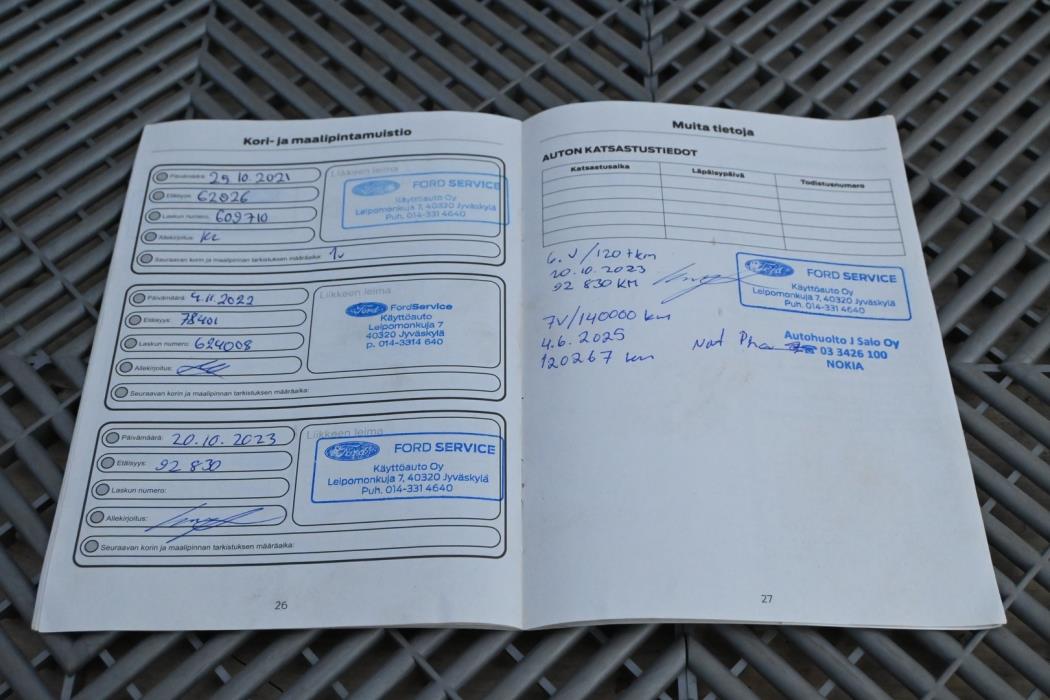 Kori- ja maalipintamuistio
Päivämäärä: 29.10.2021
Etäisyys: 62026
Laskun numero: 609710
Allekirjoitus:
Seuraavan korin ja maalipinnan tarkistuksen määräaika: 1v
Liikkeen leima
Ford FORD SERVICE
Käyttöauto Oy
Leipomonkuja 7, 40320 Jyväskylä
Puh. 014-331 4640
Päivämäärä: 4.11.2022
Etäisyys: 78401
Laskun numero: 624008
Allekirjoitus:
Seuraavan korin ja maalipinnan tarkistuksen määräaika:
Liikkeen leima
Ford FordService
Käyttöauto
Leipomonkuja 7
40320 Jyväskylä
p. 014-3314 640
Päivämäärä: 20.10.2023
Etäisyys: 92 830
Laskun numero:
Allekirjoitus:
Seuraavan korin ja maalipinnan tarkistuksen määräaika:
Liikkeen leima
Ford FORD SERVICE
Käyttöauto Oy
Leipomonkuja 7, 40320 Jyväskylä
Puh. 014-331 4640
26
Muita tietoja
AUTON KATSASTUSTIEDOT
Katsastusaika Läpäisypäivä Todistusnumero
6.V/120tkm
20.10.2023
92 830 KM
Ford FORD SERVICE
Käyttöauto Oy
Leipomonkuja 7, 40320 Jyväskylä
Puh. 014-331 4640
7V/140000 km
4.6.2025
120267 km
Autohuolto J Salo Oy
03 3426 100
NOKIA
27